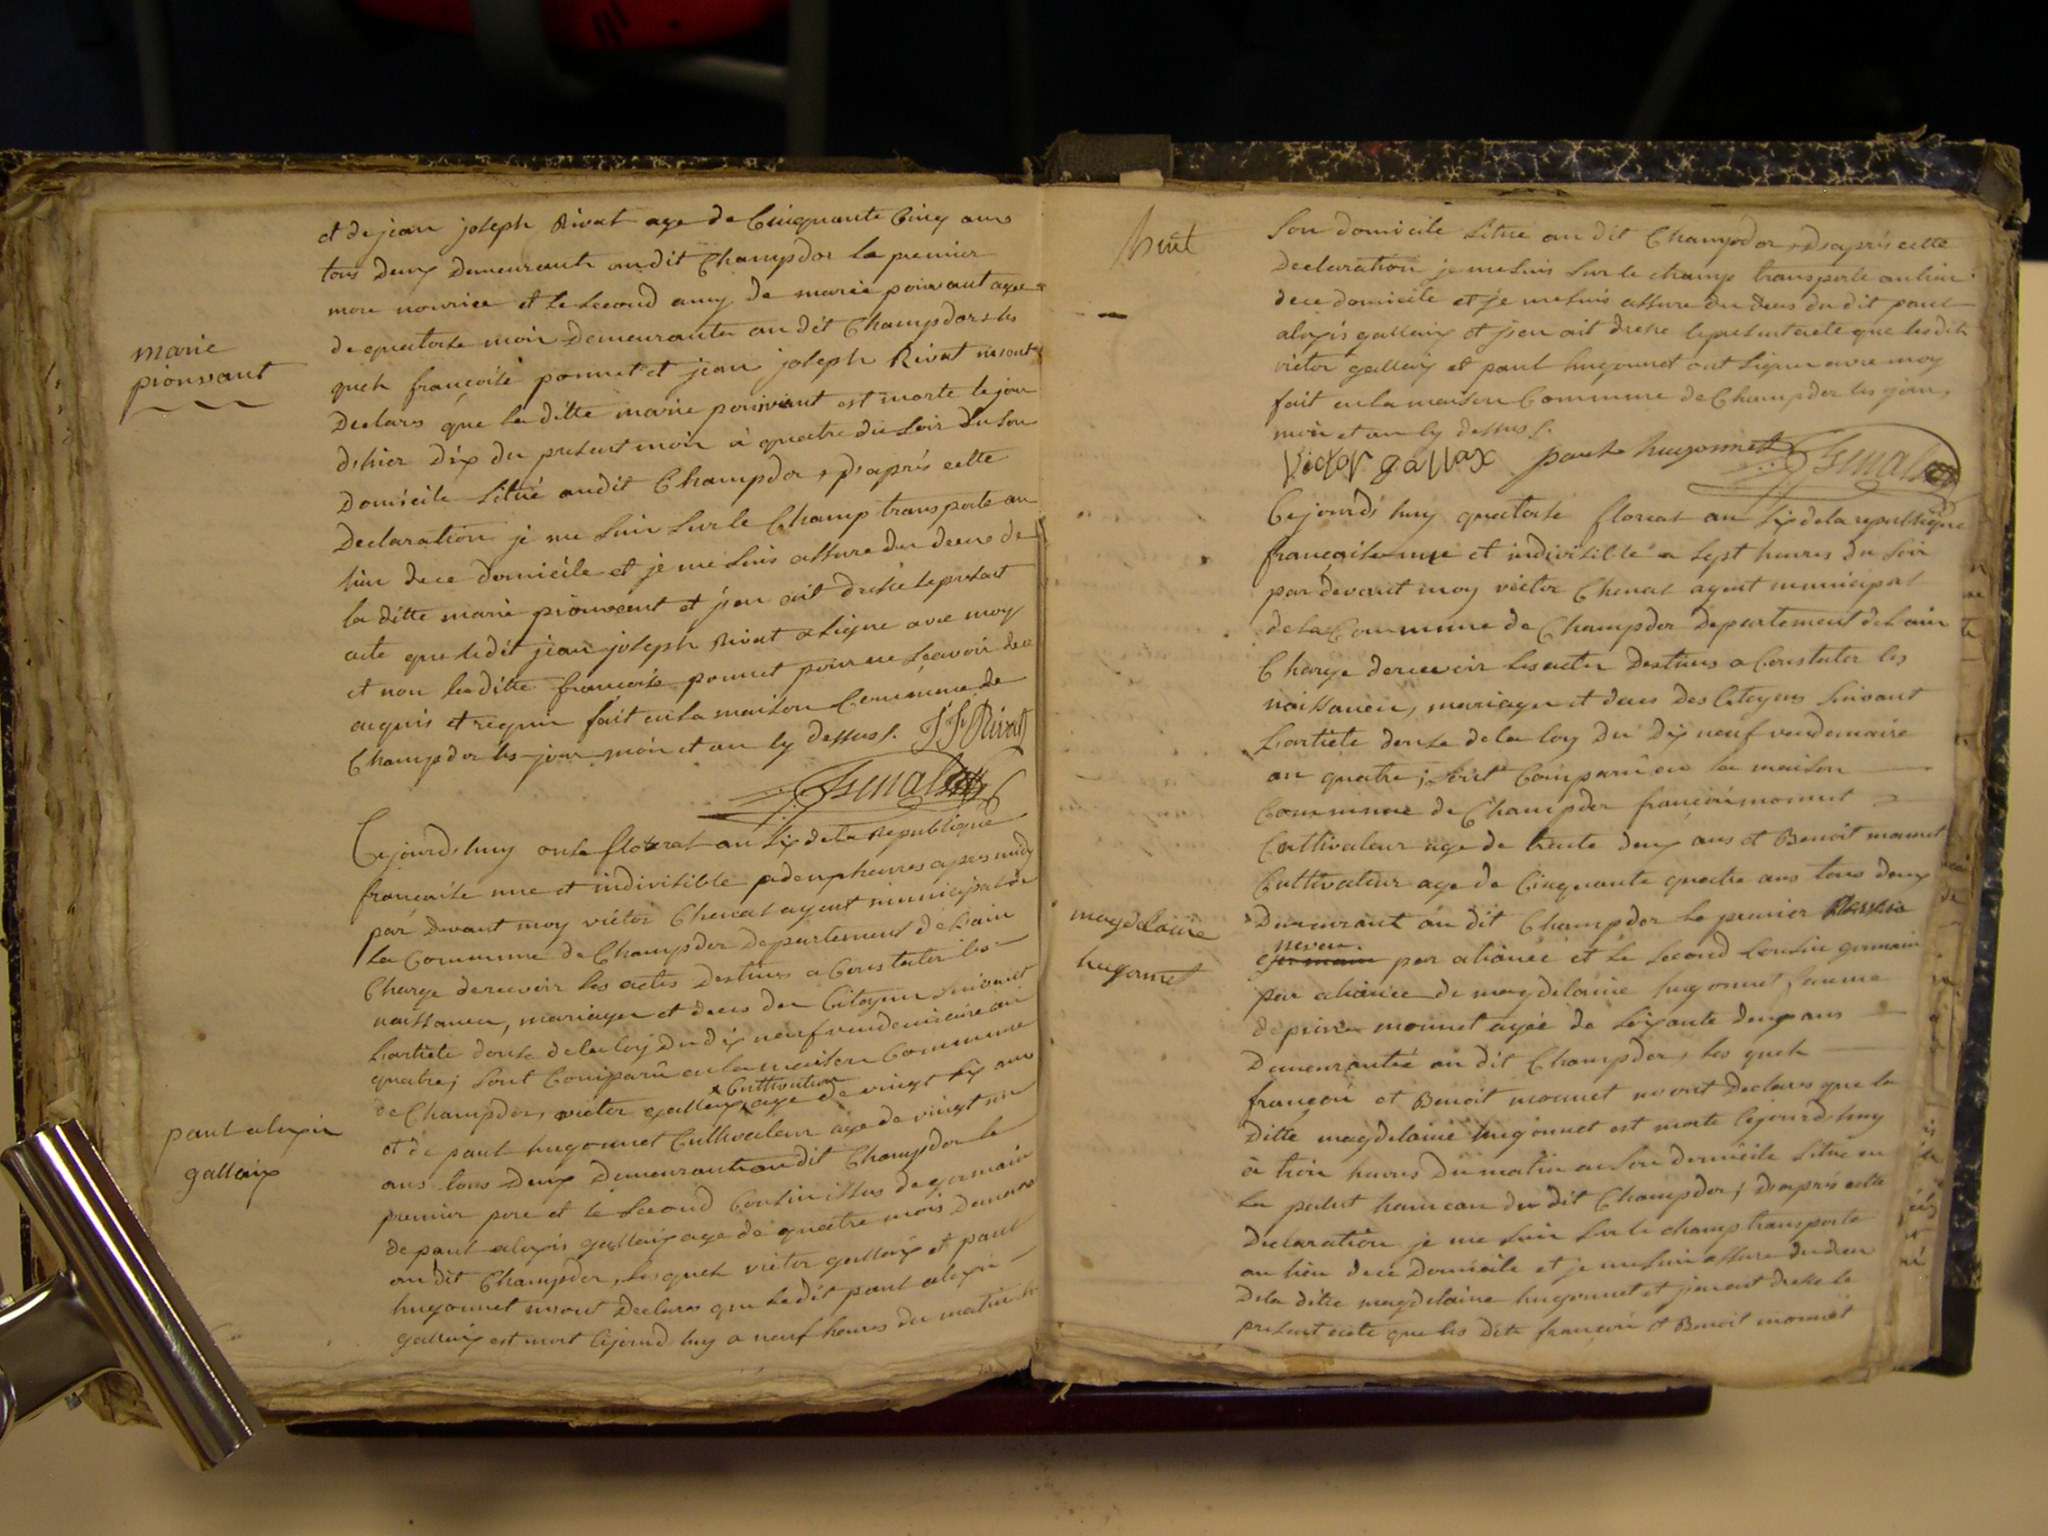 et de jean joseph Rivat age de Cinquante Cinq ans
tous deux demeurants au dit Champdor la premier
mere nourrice et le second amy de marie pionvant agee
de quatorse mois demeurante au dit Champdor les
marie
pionvant
quels françoise ponnet et jean joseph Rivat mont
declare que la ditte marie pionvant est morte le jour
d'hier dix du present mois à quatre du soir du son
domicile situé audit Champdor, d'après cette
declaration je me suis sur le Champ transporte au
lieu de ce domicile et je me suis assure du deces de
la ditte marie pionvant et j'en ait dresse le present
acte que ledit jean joseph Rivat a signe avec moy
et non la ditte francoise ponnet pour ne scavoir de ce
acquis et requis fait en la maison Commune de
Champdor les jour mois et an ly dessus. J J Rivat
Cejourd'huy onse floreal an six de la Republique
francaise une et indivisible a deux heures apres midy
par devant moy victor Chenat agent municipal de
la Commune de Champdor departement de Lain
Charge de recevoir les actes destines a Constater les
naissances, mariages et deces des Citoyens suivant
Lartiele douse de la loy du dix neuf vendemiaire an
quatre; sont Comparu en la maison Commune
de Champdor, victor gallaix Cultivateur age de vingt six ans
et de paul hugonnet Cultivateur age de vingt un
paul alexis
gallaix
ans tous deux demeurants au dit Champdor le
premier pere et le second Cousin issus de germain
de paul alexis gallaix age de quatre mois demeure
au dit Champdor, lesquels victor gallaix et paul
hugonnet mont declares que ledit paul alexis
gallaix est mort cejourd huy a neuf heures du matin
huit
son domicile situe au dit Champdor, d'après cette
declaration je me suis sur le champ transporte au lieu
de ce domicile et je me suis assure du deces du dit paul
alexis gallaix et j'en ait dresse le present acte que lesdits
victor gallaix et paul hugonnet ont signer avec moy
fait en la maison Commune de Champdor les jour,
mois et an ly dessus.
victor gallax paul hugonnet
Cejourd'huy quatorse floreal an six de la republique
francaise une et indivisible a sept heures du soir
par devant moy victor Chenat agent municipal
de la Commune de Champdor departement de Lain
Charge de recevoir les actes destines a Constater les
naissances, mariages et deces des Citoyens suivant
Lartiele douse de la loy du dix neuf vendemaire
an quatre; sont Comparu en la maison
Commune de Champdor françois monnet
Cultivateur age de trante deux ans et Benoit monnet
Cultivateur age de Cinquante quatre ans tous deux
magdelaine
hugonnet
demeurant au dit Champdor le premier
neveu
germain par aliance et le second Cousin germain
par aliance de magdelaine hugonnet femme
de pierre monnet agée de soixante deux ans
demeurante au dit Champdor, les quels
françois et Benoit monnet mont declares que la
ditte magdelaine hugonnet est morte cejourd'huy
à trois heures du matin en son domicile situe en
la palut hameau du dit Champdor; d'après cette
declaration je me suis sur le champ transporte
au lieu de ce domicile et je me suis assure du deces
de la ditte magdelaine hugonnet et j'en ait dresse le
present acte que les dits françois et Benoit monnet